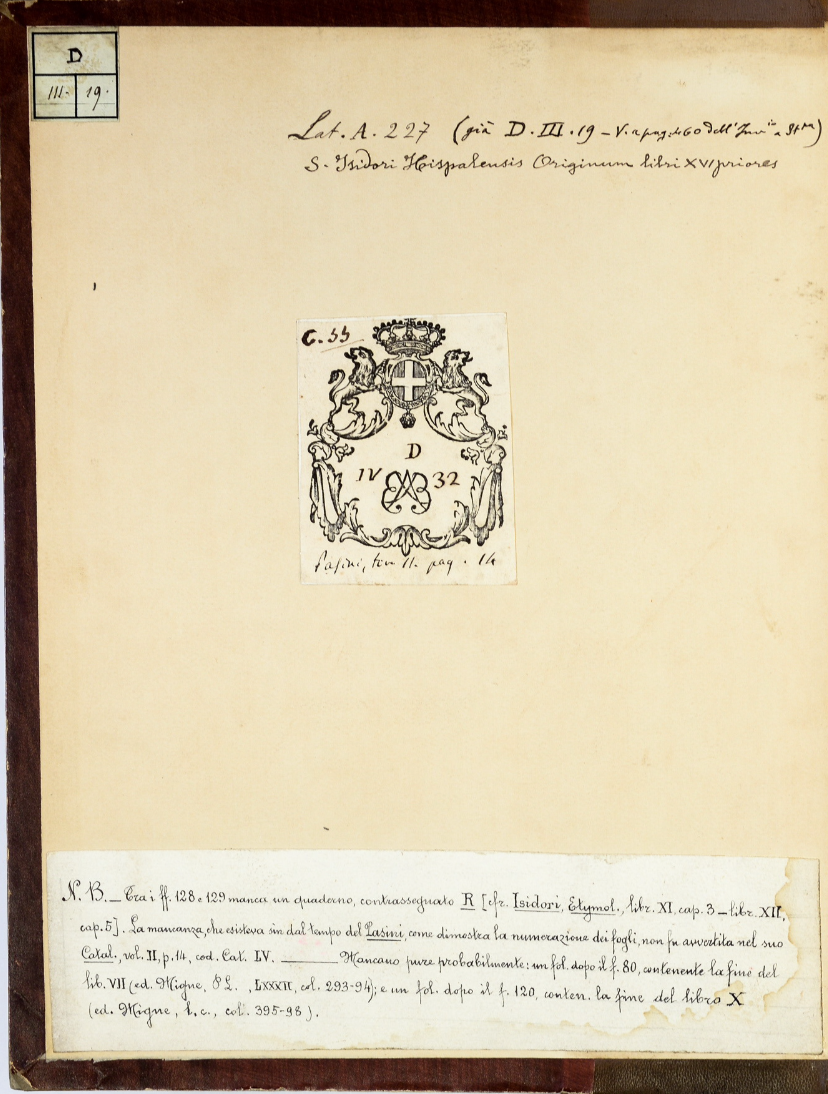 D
III. 19.
Lat. A. 227 (già D. III. 19 - V. a pag. 460 dell' Inv.io a St.pa)
S. Isidori Hispalensis Originum libri XVI priores
G. 33
D
IV 32
Pasini, tom II. pag. 14
N. B. _ Tra i ff. 128 e 129 manca un quaderno, contrassegnato R [cfr. Isidori, Etymol., libr. XI, cap. 3 _ libr. XII,
cap. 5]. La mancanza, che esisteva sin dal tempo del Pasini, come dimostra la numerazione dei fogli, non fu avvertita nel suo
Catal., vol. II, p. 14, cod. Lat. LV. _____ Mancano pure probabilmente: un fol. dopo il f. 80, contenente la fine del
lib. VII (ed. Migne, P L. , LXXXII, col. 293-94); e un fol. dopo il f. 120, conten. la fine del libro X
(ed. Migne, l. c., col. 395-98).